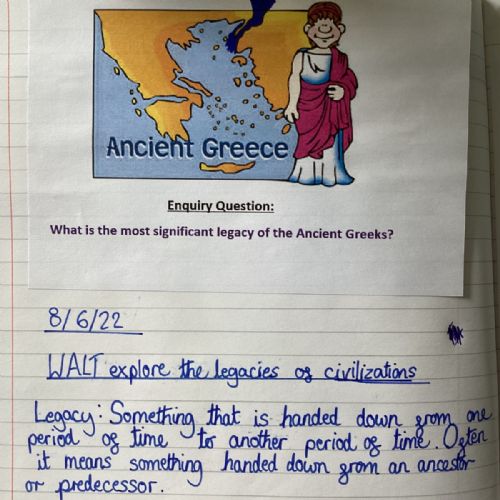 Ancient Greece
Enquiry Question:
What is the most significant legacy of the Ancient Greeks?
8/6/22
WALT explore the legacies of civilizations
Legacy: Something that is handed down from one
period of time to another period of time. Often
it means something handed down from an ancestor
or predecessor.